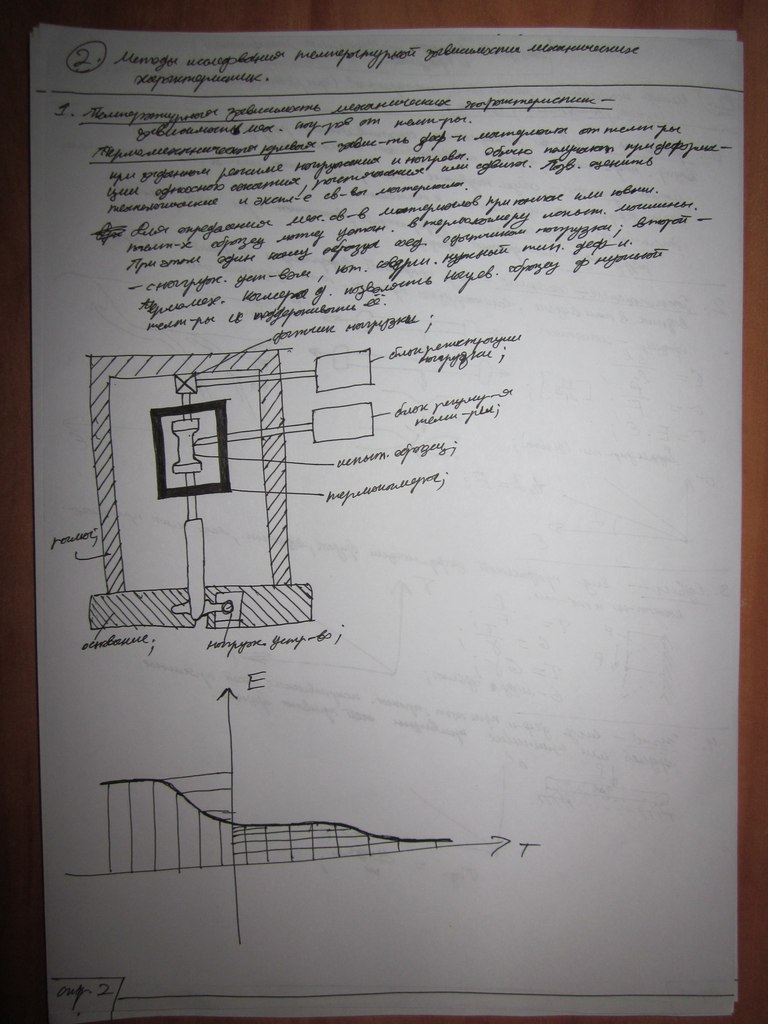 2. Методы исследования температурной зависимости механических
характеристик.
1. Температурная зависимость механических характеристик –
зависимость мех. от темп-ры.
Термомеханическая кривая – завис-ть деф-и материала от темп-ры
при заданном режиме нагружения и нагрева. Обычно получают при деформа-
ции одноосного сжатия, растяжения или сдвига. Позв. оценить
технологические и экспл-е св-ва материала.
Для определения мех. св-в материалов при пониж. или повыш.
темп-х образец в термокамеру испыт. машины.
При этом один конец образца соед. с датчиком нагрузки; второй –
– с нагруж. уст-вом, кот. нужный тип. деф-и.
Термомех. камера д. позволять образец до нужной
темп-ры и поддерживать её.
датчик нагрузки;
блок регистрации
нагрузки;
блок регулир-я
темп-ры;
испыт. образец;
термокамера;
основание;
нагруж. устр-во;
E
T
стр. 2